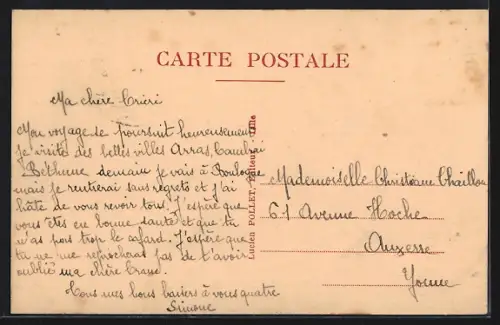 CARTE POSTALE
Ma chère
Mon voyage se poursuit heureusement
je visite des belles villes Arras, Cambrai
Béthune demain je vais à Boulogne
mais je rentierai sans regrets et j'ai
hâte de vous revoir tous. J'espère que
vous êtes en bonne santé et que tu
n'as pas trop le cafard. J'espère que
tu ne me reprocheras pas de t'avoir
oublié ma chère
Tous mes bons baisers à vous quatre
Simone
Lucien POLLET, Editeur, Lille
Mademoiselle Christiane Chaillou
61 Avenue Hoche
Auxerre
Yonne